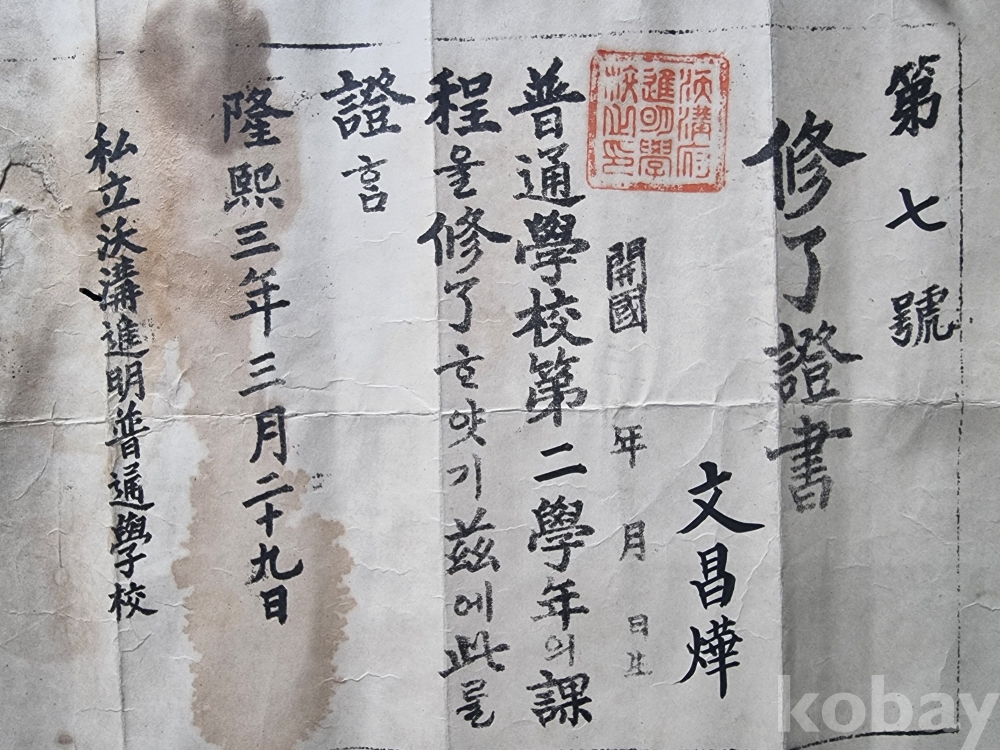 第七號
修了證書
文昌燁
開國 年 月 日生
沃溝府
進明學
校之印
普通學校第二學年의課
程을修了ᄒᆞ얏기玆에此를
證ᄒᆞᆷ
隆熙三年三月二十九日
私立沃溝進明普通學校
kobay